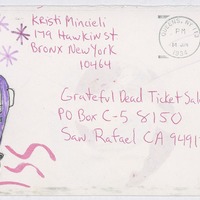 Kristi Mincieli
179 Hawkin St
Bronx New York
10464
PM
Grateful Dead Ticket Sal
PO Box C-S 8150
San Rafael CA 9491